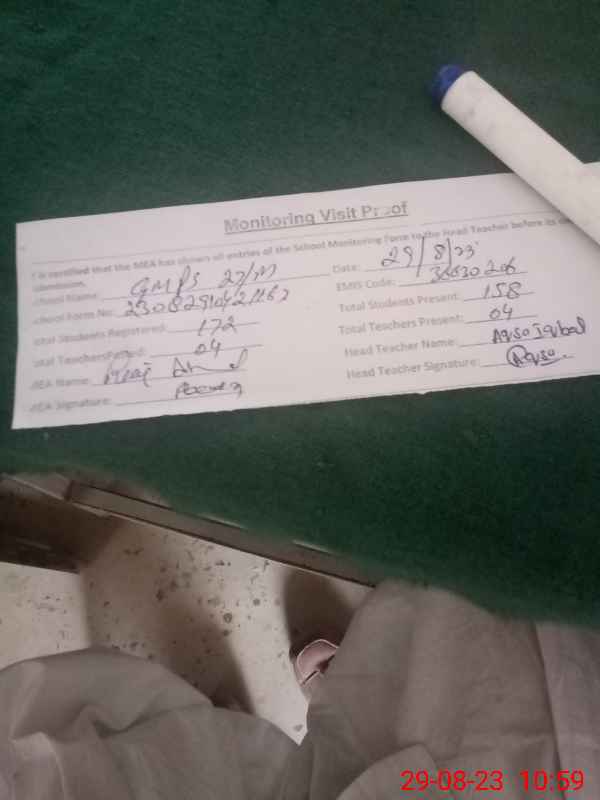 Monitoring Visit Proof
is certified that the MEA has shown all entries of the School Monitoring Form to the Head Teacher before its
submission.
School Name: GMPS 27/M Date: 29/8/23
School Form No: EMIS Code:
Total Students Registered: 172 Total Students Present: 158
Total Teachers Posted: 04 Total Teachers Present: 04
MEA Name: Head Teacher Name: Aqsa Iqbal
MEA Signature: Head Teacher Signature: Aqsa
29-08-23 10:59